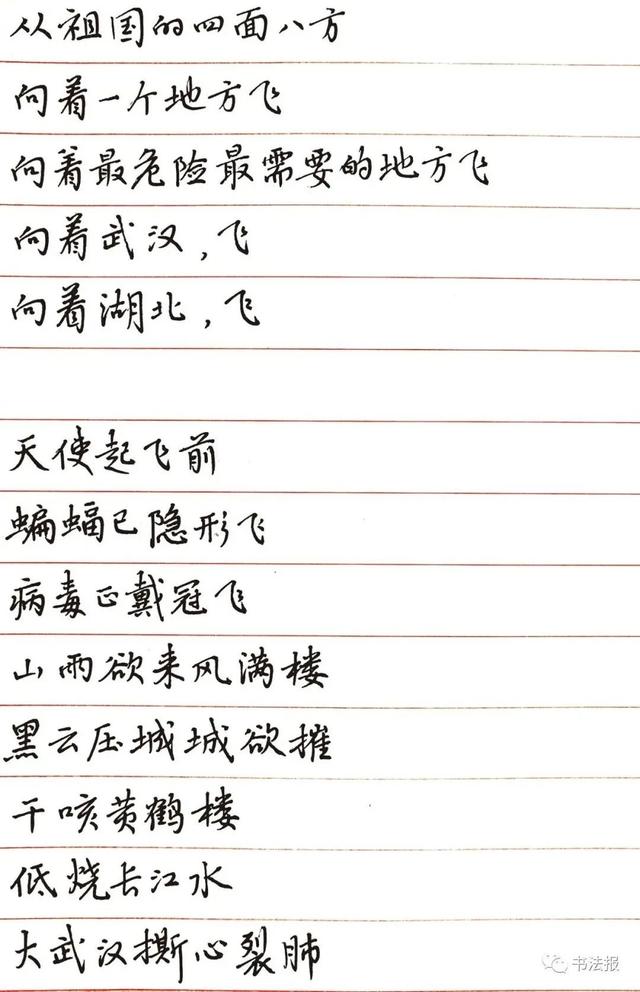 从祖国的四面八方
向着一个地方飞
向着最危险最需要的地方飞
向着武汉,飞
向着湖北,飞
天使起飞前
蝙蝠已隐形飞
病毒正戴冠飞
山雨欲来风满楼
黑云压城城欲摧
干咳黄鹤楼
低烧长江水
大武汉撕心裂肺
书法报